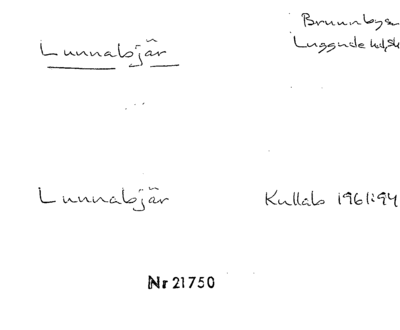 Lunnabjär
Brunnby sn
Luggude hd, Sk
Lunnabjär
Kullab 1961:94
Nr 21750